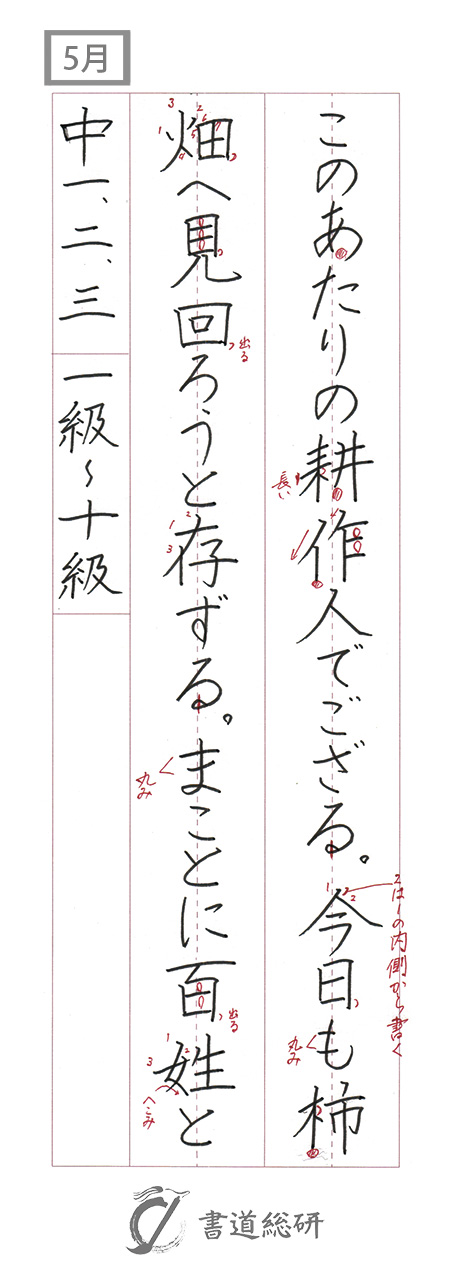 5月
このあたりの耕作人でござる。今日も柿
畑へ見回ろうと存ずる。まことに百姓と
中一、二、三 一級〜十級
長い
2は1の内側から書く
丸み
出る
丸み
出る
へこみ
書道総研